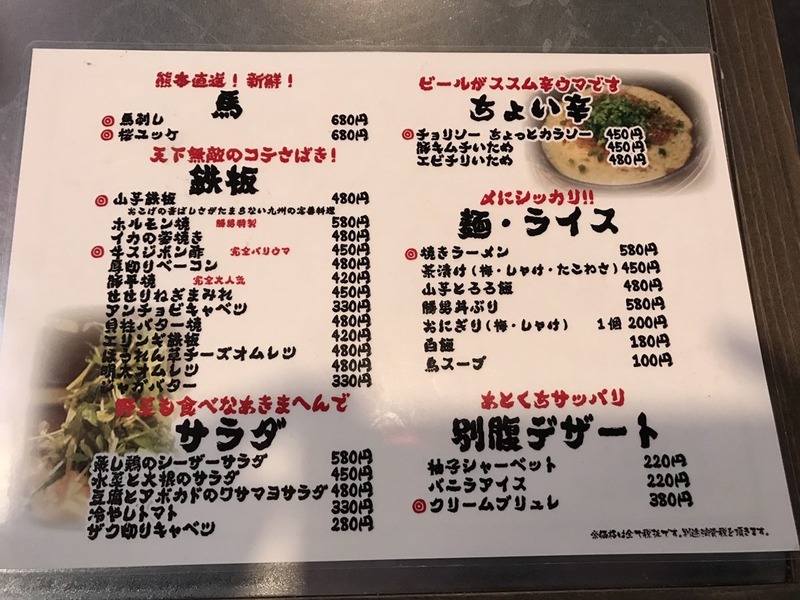 熊本直送！新鮮！
馬
馬刺し 680円
桜ユッケ 680円
天下無敵のコテさばき！
鉄板
山芋鉄板 480円
おこげの香ばしさがたまらない九州の定番料理
ホルモン焼 勝男特製 580円
イカの姿焼き 480円
牛スジポン酢 完全バリウマ 450円
厚切りベーコン 480円
豚平焼 完全大人気 420円
せせりねぎまみれ 450円
アンチョビキャベツ 330円
貝柱バター焼 480円
エリンギ鉄板 420円
ほうれん草チーズオムレツ 480円
明太オムレツ 480円
ジャガバター 330円
野菜も食べなあきまへんで
サラダ
蒸し鶏のシーザーサラダ 580円
水菜と大根のサラダ 450円
豆腐とアボカドのワサマヨサラダ 480円
冷やしトマト 330円
ザク切りキャベツ 280円
ビールがススム辛ウマです
ちょい辛
チョリソー ちょっとカラソー 450円
豚キムチいため 450円
エビチリいため 480円
〆にシッカリ!!
麺・ライス
焼きラーメン 580円
茶漬け(梅・しゃけ・たこわさ) 450円
山芋とろろ飯 480円
勝男丼ぶり 580円
おにぎり(梅・しゃけ) 1個 200円
白飯 180円
鳥スープ 100円
あとくちサッパリ
別腹デザート
柚子シャーベット 220円
バニラアイス 220円
クリームブリュレ 380円
※価格は全て税抜です。別途消費税を頂きます。